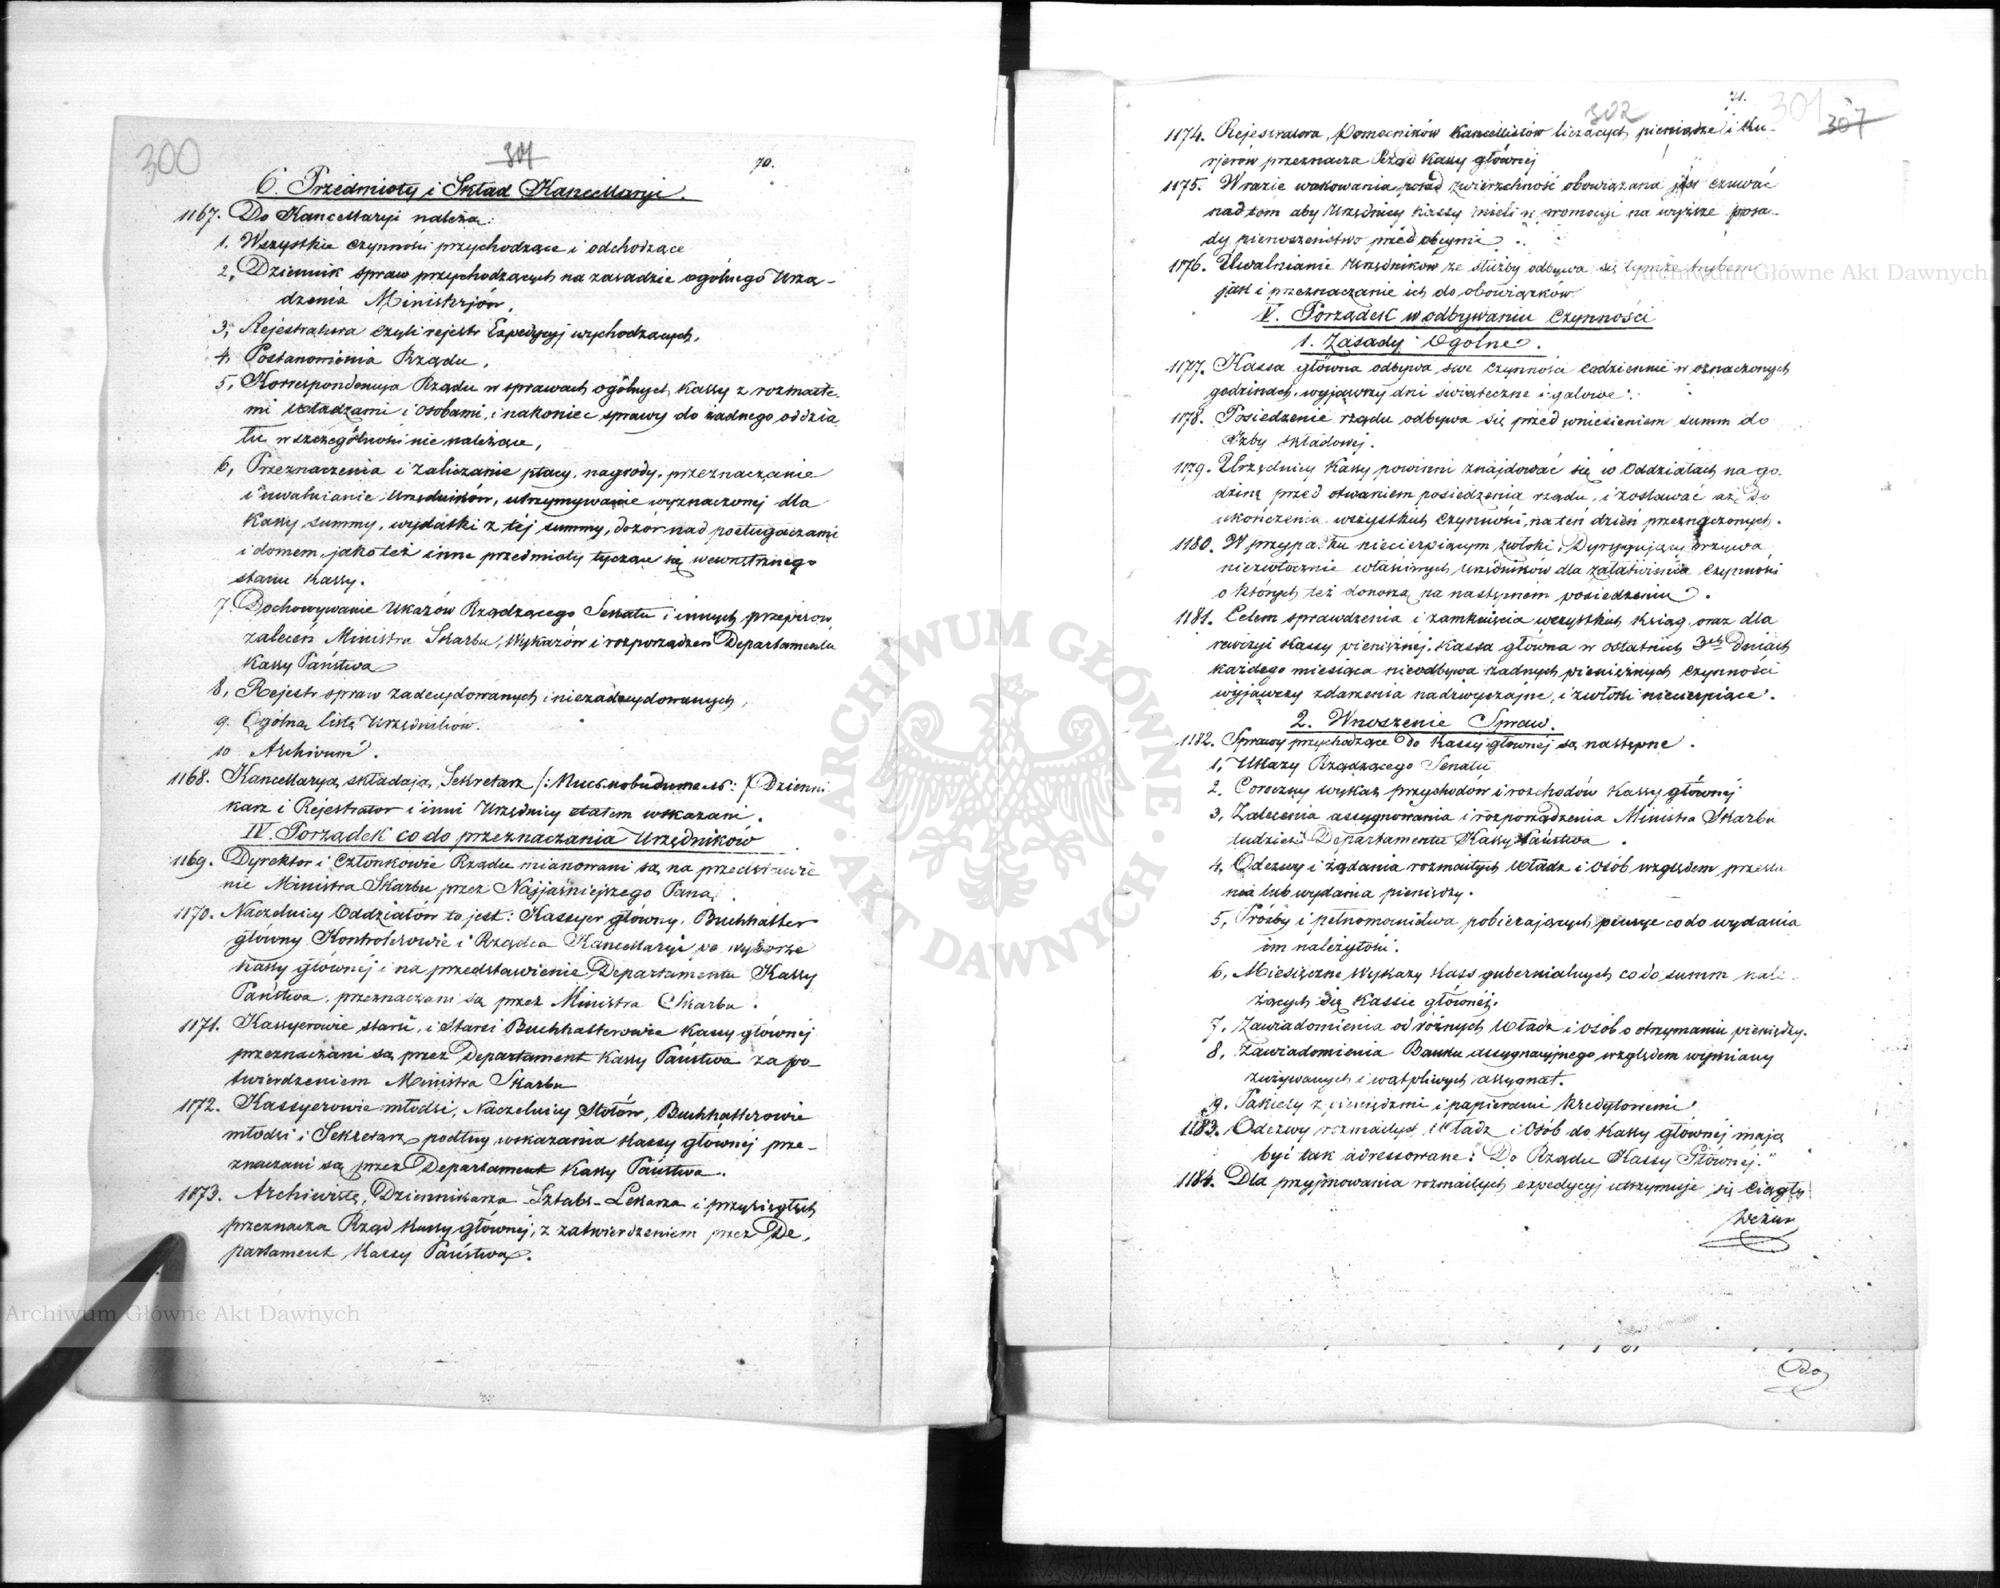 300
301
70.
6. Przedmioty i Skład Kancellaryi.
1167. Do Kancellaryi należą:
1. Wszystkie czynności przychodzące i odchodzące
2, Dziennik spraw przychodzących na zasadzie ogólnego Urzą-
dzenia Ministerjów,
3, Rejestratura czyli rejestr Expedycyj wychodzących,
4, Postanowienia Rządu,
5, Korrespondencya Rządu w sprawach ogólnych, Kassy z rozmaite-
mi władzami i osobami, i nakoniec sprawy do żadnego oddzia
łu w szczególności nie należące,
6, Przeznaczenia i zaliczanie płacy, nagrody, przeznaczanie
i uwalnianie Urzędników, utrzymywanie wyznaczonej dla
Kassy summy, wydatki z tej summy, dozór nad posługaczami
i domem, jako też inne przedmioty tyczące się wewnętrznego
stanu Kassy.
7. Dochowywanie Ukazów Rządzącego Senatu i innych przepisów,
zaleceń Ministra Skarbu, Wykazów i rozporządzeń Departamentu
Kassy Państwa
8, Rejestr spraw zadecydowanych i niezadecydowanych,
9. Ogólna lista Urzędników.
10 Archivum.
1168. Kancellaryą składają, Sekretarz /: Письмоводитель: / Dzienni
karz i Rejestrator i inni Urzędnicy etatem wskazani.
IV. Porządek co do przeznaczania Urzędników
1169. Dyrektor i Członkowie Rządu mianowani są na przedstawie
nie Ministra Skarbu przez Najjaśniejszego Pana.
1170. Naczelnicy Oddziałów to jest: Kassyer główny, Buchhalter
główny Kontrolerowie i Rządca Kancellaryi po wyborze
Kassy głównej i na przedstawienie Departamentu Kassy
Państwa, przeznaczani są przez Ministra Skarbu.
1171. Kassyerowie starsi, i Starsi Buchhalterowie Kassy głównej
przeznaczani są przez Departament Kassy Państwa za po-
twierdzeniem Ministra Skarbu
1172. Kassyerowie młodsi, Naczelnicy Stołów, Buchhalterowie
młodsi i Sekretarz podług wskazania Kassy głównej prze-
znaczani są przez Departament Kassy Państwa.
1173. Archiwistę, Dziennikarza Sztabs-Lekarza i przysięgłych
przeznacza Rząd Kassy głównej, z zatwierdzeniem przez De,
partament Kassy Państwa.
71.
302 301 307
1174. Rejestratora, Pomocników Kancellistów liczących pieniądze i Ku-
rjerów przeznacza Rząd Kassy głównej
1175. W razie wakowania posad zwierzchność obowiązana jest czuwać
nad tém aby Urzędnicy Kassy mieli w promocyi na wyższe posa-
dy pierwszeństwo przed obcymi.
1176. Uwalnianie Urzędników ze służby odbywa się tymże trybem
jak i przeznaczanie ich do obowiązków
V. Porządek w odbywaniu Czynności
1. Zasady Ogólne.
1177. Kassa główna odbywa swe czynności codziennie w oznaczonych
godzinach, wyjąwszy dni świąteczne i galowe.
1178. Posiedzenie rządu odbywa się przed wniesieniem summ do
Izby składowej.
1179. Urzędnicy Kassy powinni znajdować się w Oddziałach na go-
dzinę przed otwarciem posiedzenia rządu, i zostawać aż do
ukończenia wszystkich czynności, na ten dzień przeznaczonych.
1180. W przypadku niecierpiącym zwłoki, Dyrygujący wzywa
niezwłocznie właściwych Urzędników dla załatwienia czynności
o których też donoszą na następném posiedzeniu.
1181. Celem sprawdzenia i zamknięcia wszystkich ksiąg oraz dla
rewizyi Kassy pieniężnej, Kassa główna w ostatnich 3ch Dniach
każdego miesiąca nieodbywa żadnych pieniężnych czynności
wyjąwszy zdarzenia nadzwyczajne, i zwłoki niecierpiące.
2. Wnoszenie Spraw.
1182. Sprawy przychodzące do Kassy głównej są następne.
1, Ukazy Rządzącego Senatu,
2. Coroczny wykaz przychodów i rozchodów Kassy głównej
3, Zalecenia assygnowania i rozporządzenia Ministra Skarbu
tudzież Departamentu Kassy Państwa.
4, Odezwy i żądania rozmaitych Władz i osób względem przesła
nia lub wydania pieniędzy.
5, Prośby i pełnomocnictwa pobierających pensye co do wydania
im należytości.
6, Miesięczne Wykazy Kass gubernialnych co do summ nale-
żących się Kassie głównej.
7, Zawiadomienia od różnych Władz i osób o otrzymaniu pieniędzy.
8, Zawiadomienia Banku assygnacyjnego względem wymiany
zużywanych i wątpliwych assygnat.
9. Pakiety z pieniędzmi i papierami kredytowemi
1183. Odezwy rozmaitych władz i osób do Kassy głównej mają
być tak adressowane: "Do Rządu Kassy Głównej."
1184. Dla przyjmowania rozmaitych expedycyj utrzymuje się ciągły
Dzur
Do
ARCHIWUM GŁÓWNE AKT DAWNYCH
Archiwum Główne Akt Dawnych
Archiwum Główne Akt Dawnych